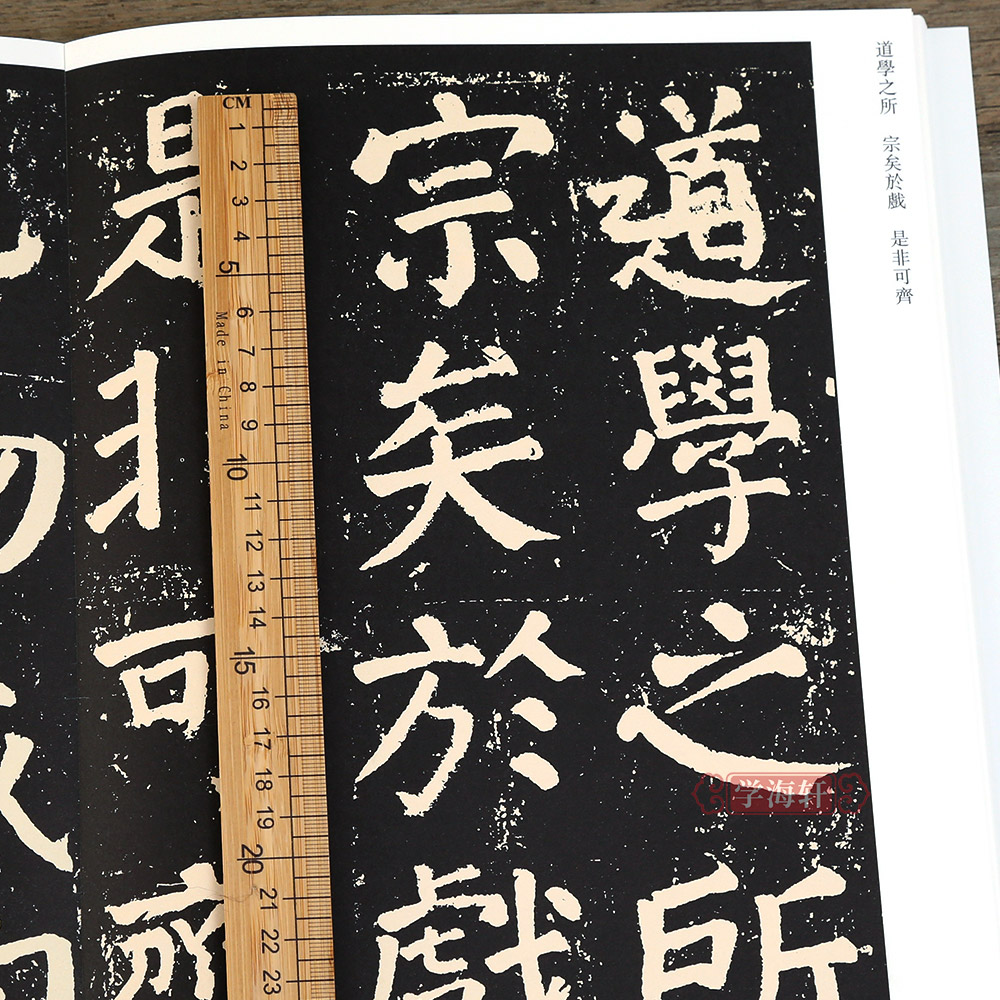 道學之所
宗矣於戲
是非可齊
道學之所 宗矣於戲 是非可齊
CM
1
2
3
4
5
6
7
8
9
10
11
12
13
14
15
16
17
18
19
20
21
22
23
Made in China
学海轩